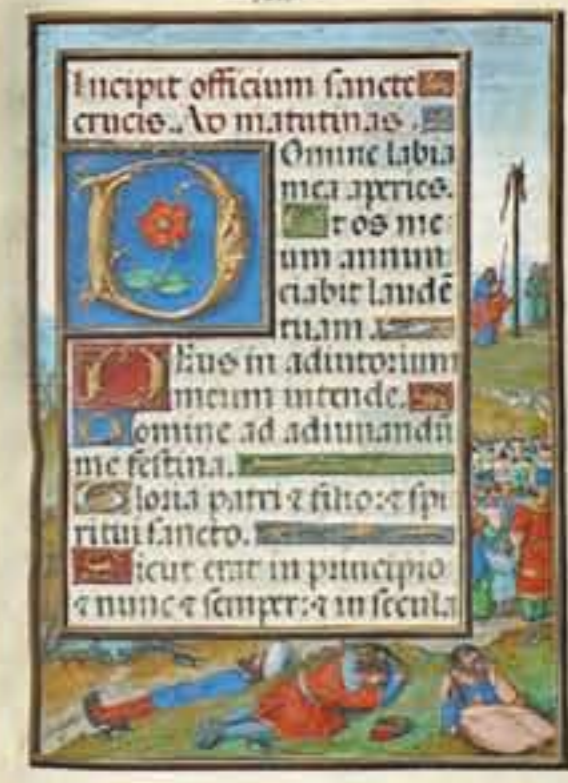 Incipit officium sancte
crucis. Ad matutinas.
Domine labia
mea aperies.
Et os me
um annun
ciabit laudē
tuam.
Deus in adiutorium
meum intende.
Domine ad adiuuandū
me festina.
Gloria patri ⁊ filio: ⁊ spi
ritui sancto.
Sicut erat in principio
⁊ nunc ⁊ semper: ⁊ in secula